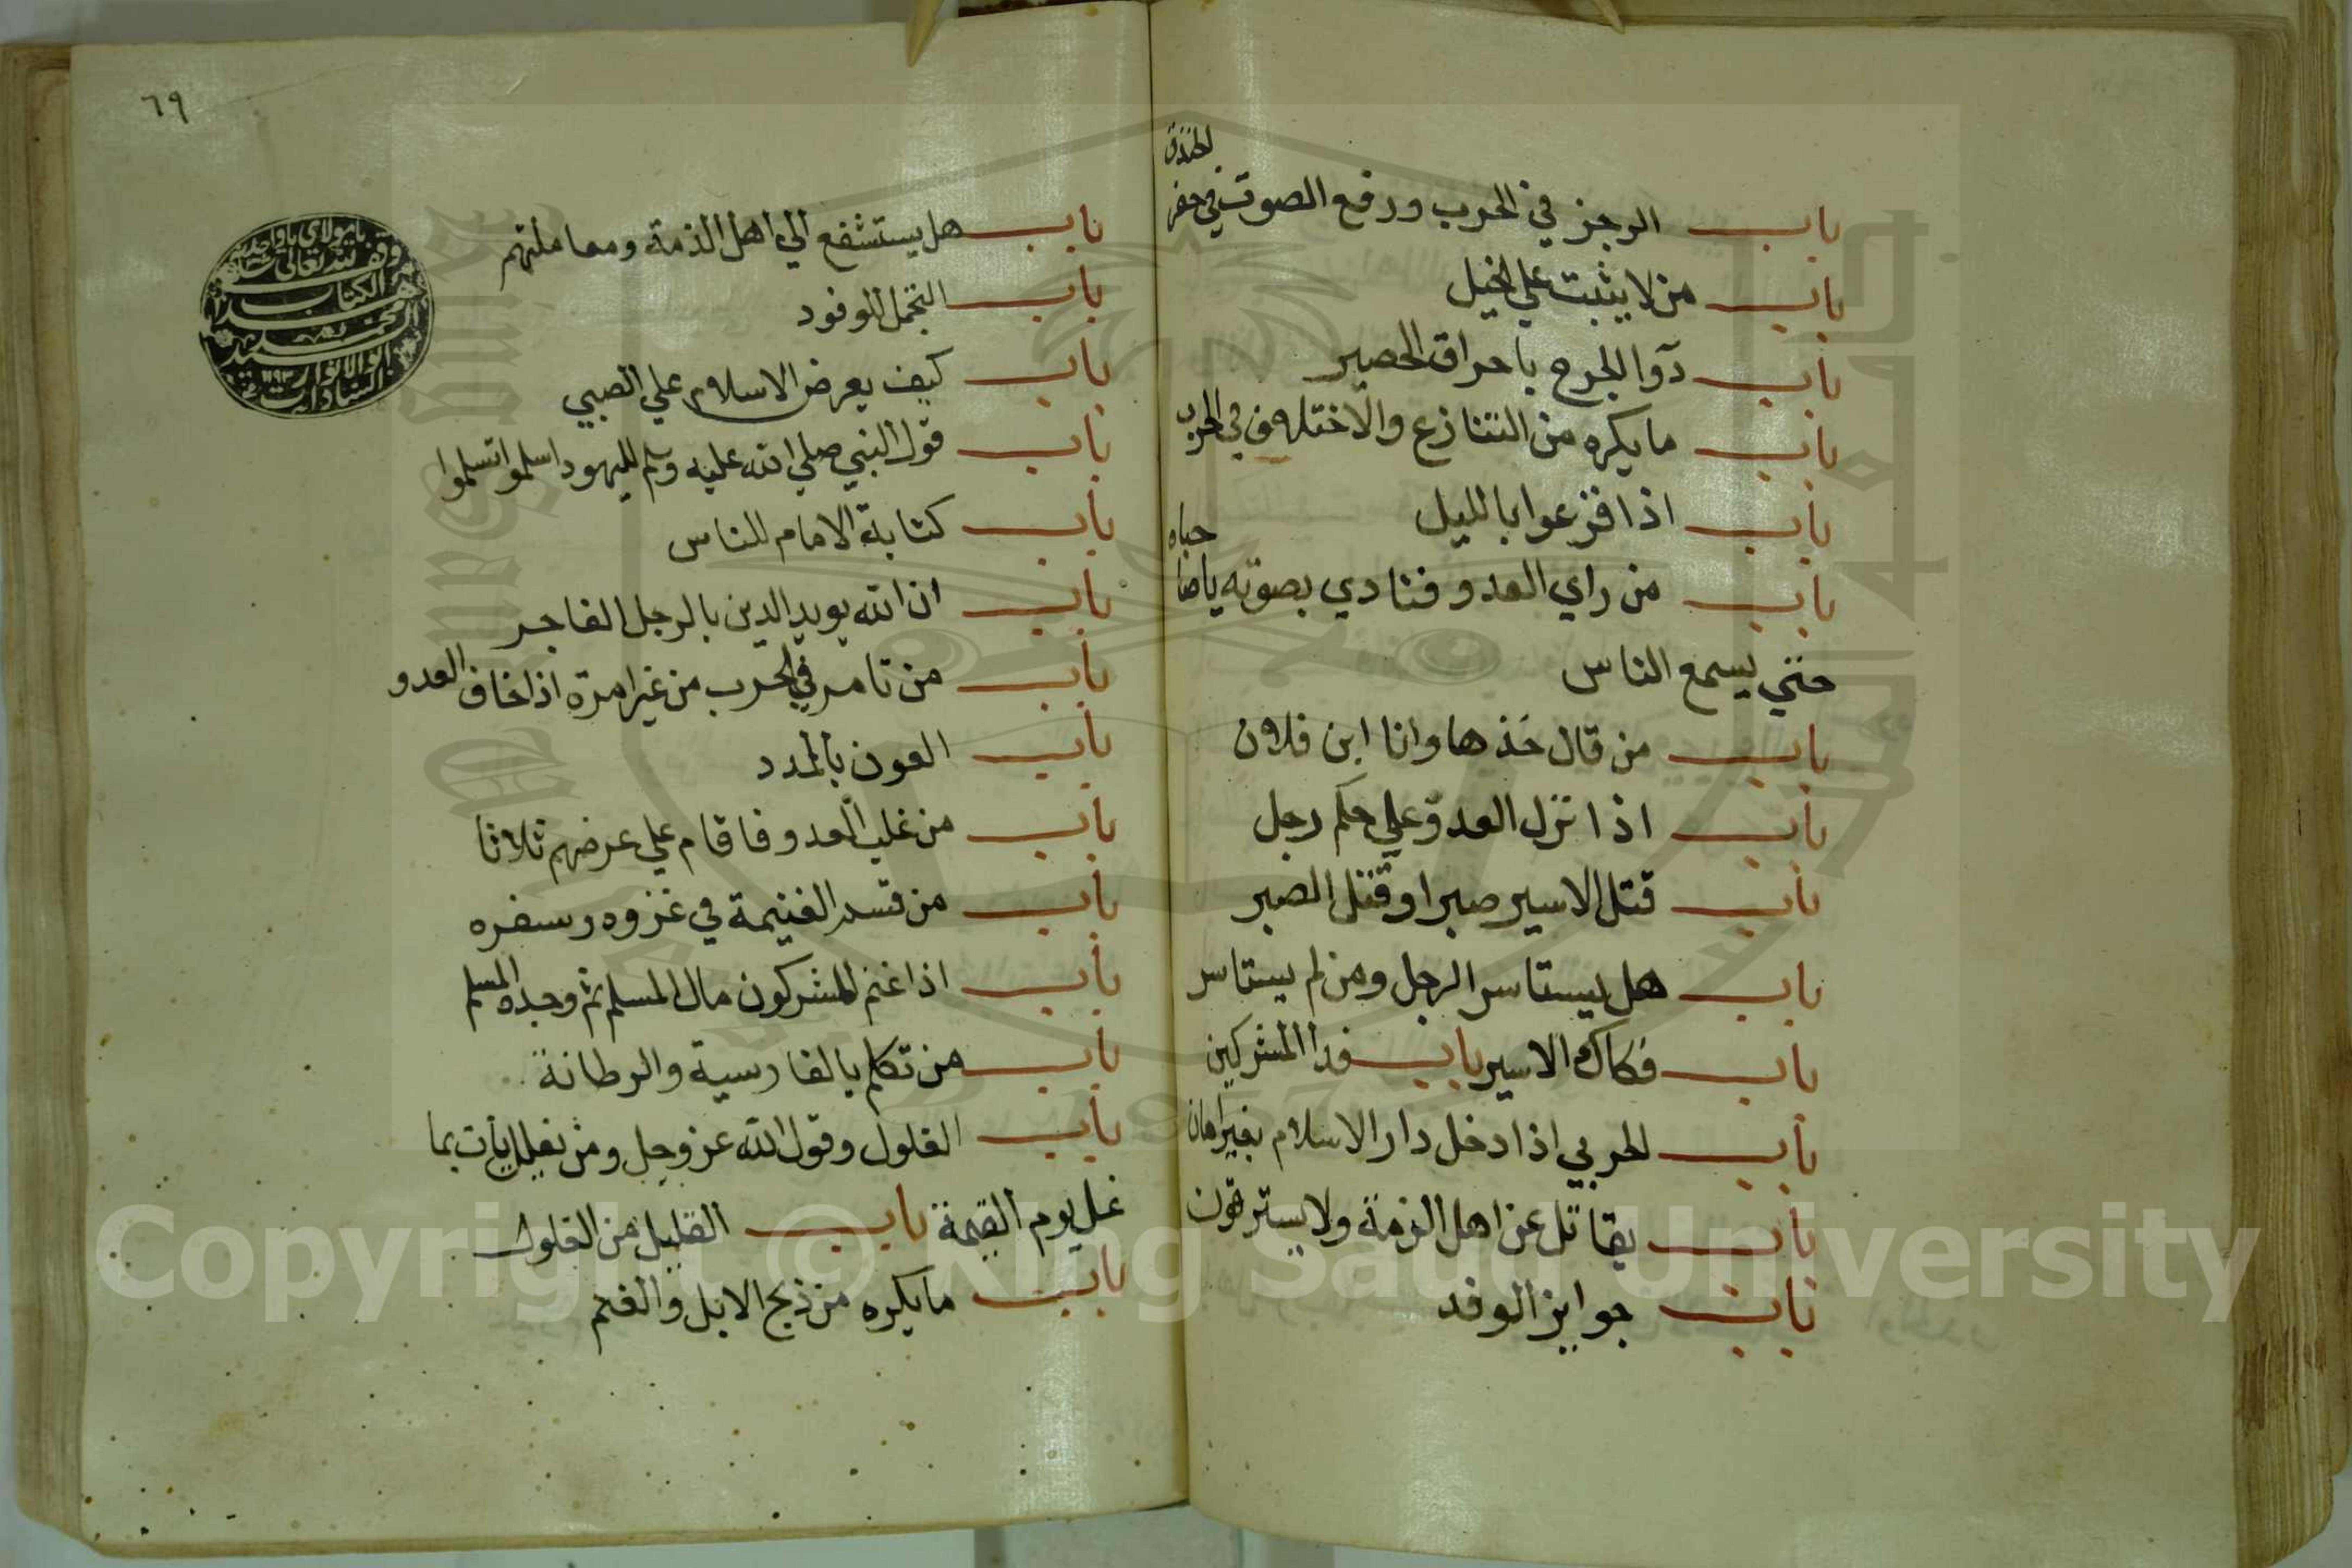 باب الرجز في الحرب ورفع الصوت في حفر الخندق
باب من لا يثبت علي الخيل
باب دوا الجرح باحراق الحصير
باب ما يكره من التنازع والاختلاف في الحرب
باب اذا فزعوا بالليل
باب من راي العدو فنادي بصوته ياصباحاه
حتي يسمع الناس
باب من قال خذها وانا ابن فلان
باب اذا نزل العدو علي حكم رجل
باب قتل الاسير صبرا وقتل الصبر
باب هل يستاسر الرجل ومن لم يستاسر
باب فكاك الاسير باب فدا المشركين
باب الحربي اذا دخل دار الاسلام بغير امان
باب يقاتل عن اهل الذمة ولا يسترقون
باب جوايز الوفد
٦٩
باب هل يستشفع الي اهل الذمة ومعاملتهم
باب التجمل للوفود
باب كيف يعرض الاسلام علي الصبي
باب قول النبي صلي الله عليه وسلم لليهود اسلموا تسلموا
باب كتابة الامام للناس
باب ان الله يويد الدين بالرجل الفاجر
باب من تامر في الحرب من غير امرة اذا خاف العدو
باب العون بالمدد
باب من غلب العدو فاقام علي عرضهم ثلاثا
باب من قسم الغنيمة في غزوه وسفره
باب اذا غنم المشركون مال المسلم ثم وجده المسلم
باب من تكلم بالفارسية والرطانة
باب الغلول وقول الله عز وجل ومن يغلل يأت بما
غل يوم القيمة باب القليل من الغلول
باب ما يكره من ذبح الابل والغنم
وقف لله تعالى
الكتاب
محمد
Copyright © King Saud University